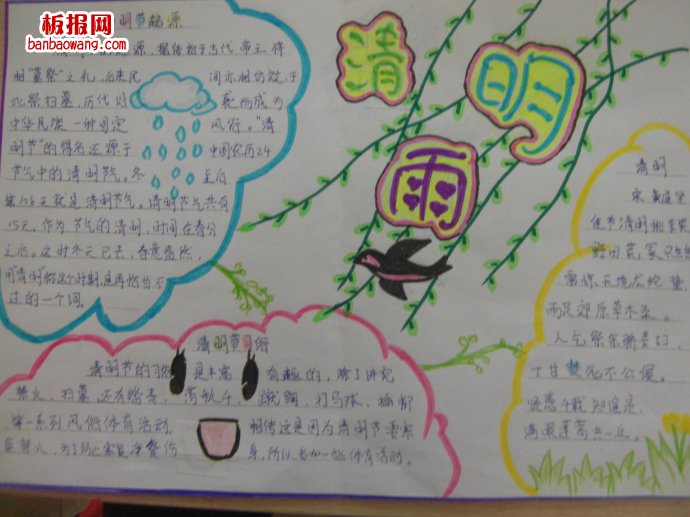 板报网
banbaowang.com
清明节起源
源，据传始于古代帝王将
相"墓祭"之礼，后来民间亦相仿效，于
此祭扫墓，历代沿袭而成为
中华民族一种固定风俗。"清
明节"的得名还源于中国农历24
节气中的清明节气。冬至后
第105天就是清明节气，清明节气共有
15天。作为节气的清明，时间在春分
之后。这时冬天已去，春意盎然，
用"清明"称这个时期，是再恰当不
过的一个词。
清明雨
清明
宋 黄庭坚
佳节清明桃李笑
野田荒冢只生愁
雷惊天地龙蛇蛰
雨足郊原草木柔
人乞祭余骄妾妇
士甘焚死不公侯
贤愚千载知谁是
满眼蓬蒿共一丘
清明节习俗
清明节的习俗是丰富有趣的，除了讲究
禁火、扫墓，还有踏青、荡秋千、蹴鞠、打马球、插柳
等一系列风俗体育活动。相传这是因为清明节要寒
食禁火，为了防止寒食冷餐伤身，所以参加一些体育活动。